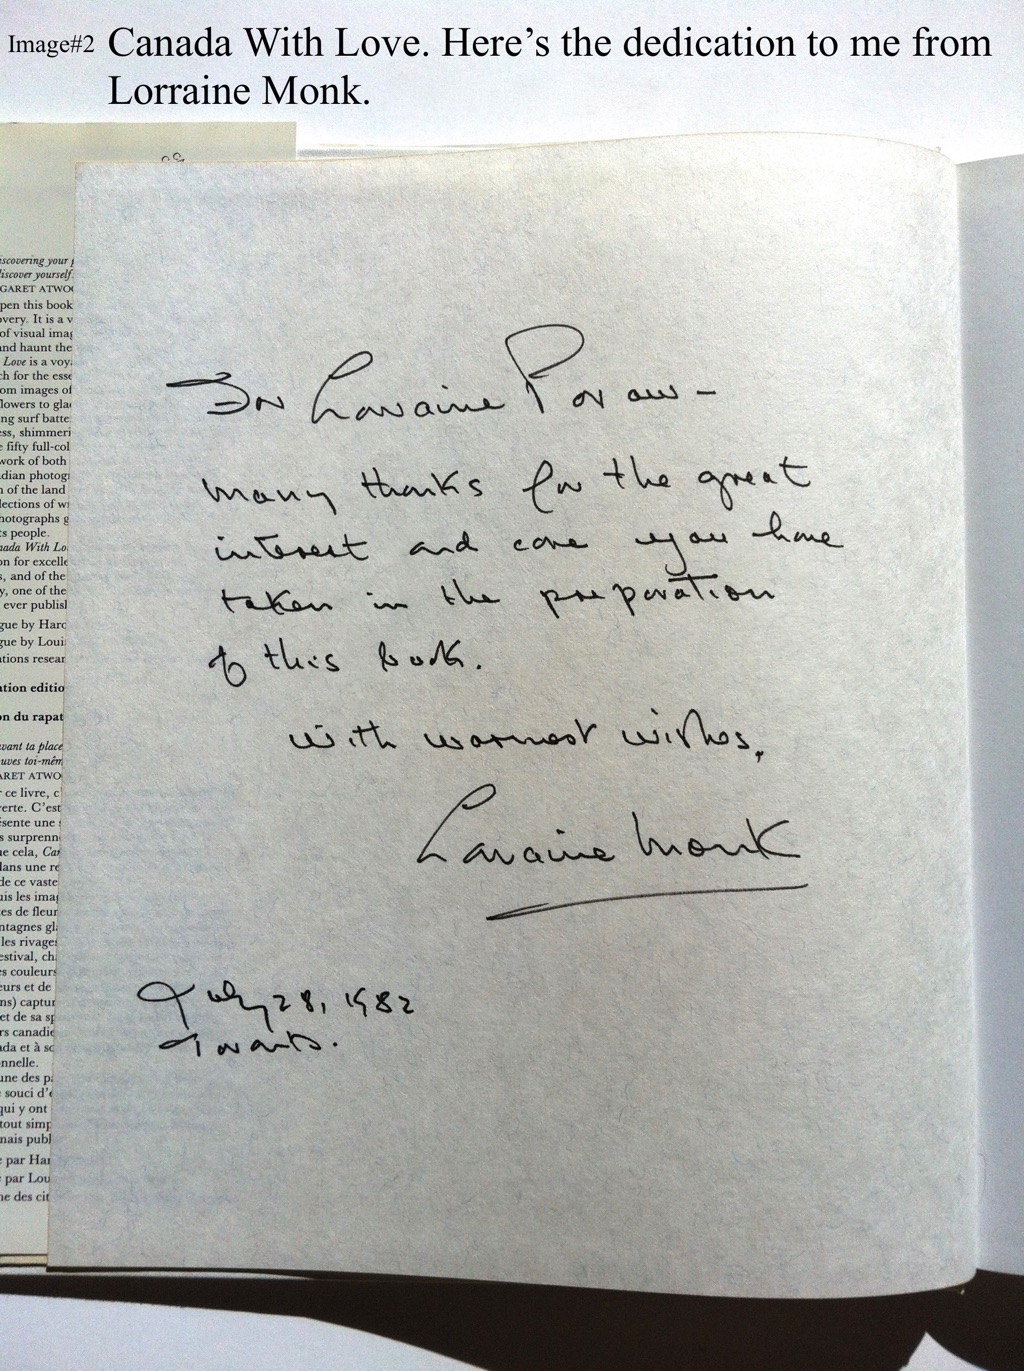 Image#2 Canada With Love. Here's the dedication to me from
Lorraine Monk.
iscovering your
discover yourself
GARET ATWO
pen this book
overy. It is a v
of visual imag
and haunt the
Love is a voy
ch for the esse
om images of
lowers to gla
ng surf batte
ess, shimmeri
e fifty full-col
work of both
dian photog
n of the land
lections of wi
hotographs g
ts people.
nada With Lo
on for excelle
s, and of the
y, one of the
ever publis
gue by Haro
gue by Loui
tions resear
ation editio
on du rapat
vant ta place
uves toi-mêm
ARET ATWO
r ce livre, c'
verte. C'est
ésente une
s surprenn
ue cela, Ca
dans une re
de ce vaste
uis les ima
es de fleur
ntagnes gl
les rivage
estival, ch
es couleurs
eurs et de
ns) captur
et de sa sp
rs canadie
ada et à so
nnelle.
une des p
souci d'e
qui y ont
tout simp
mais publ
e par Har
par Lou
ne des cit
For Lorraine
many thanks for the great
interest and care you have
taken in the preparation
of this book.
With warmest wishes,
Lorraine Monk
July 28, 1982
Toronto.